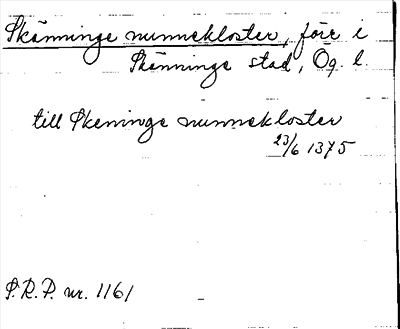 Skänninge nunnekloster, förr i
Skänninge stad, Ög. l.
till Skeninge nunnekloster
23/6 1375
S.R.P. nr. 1161